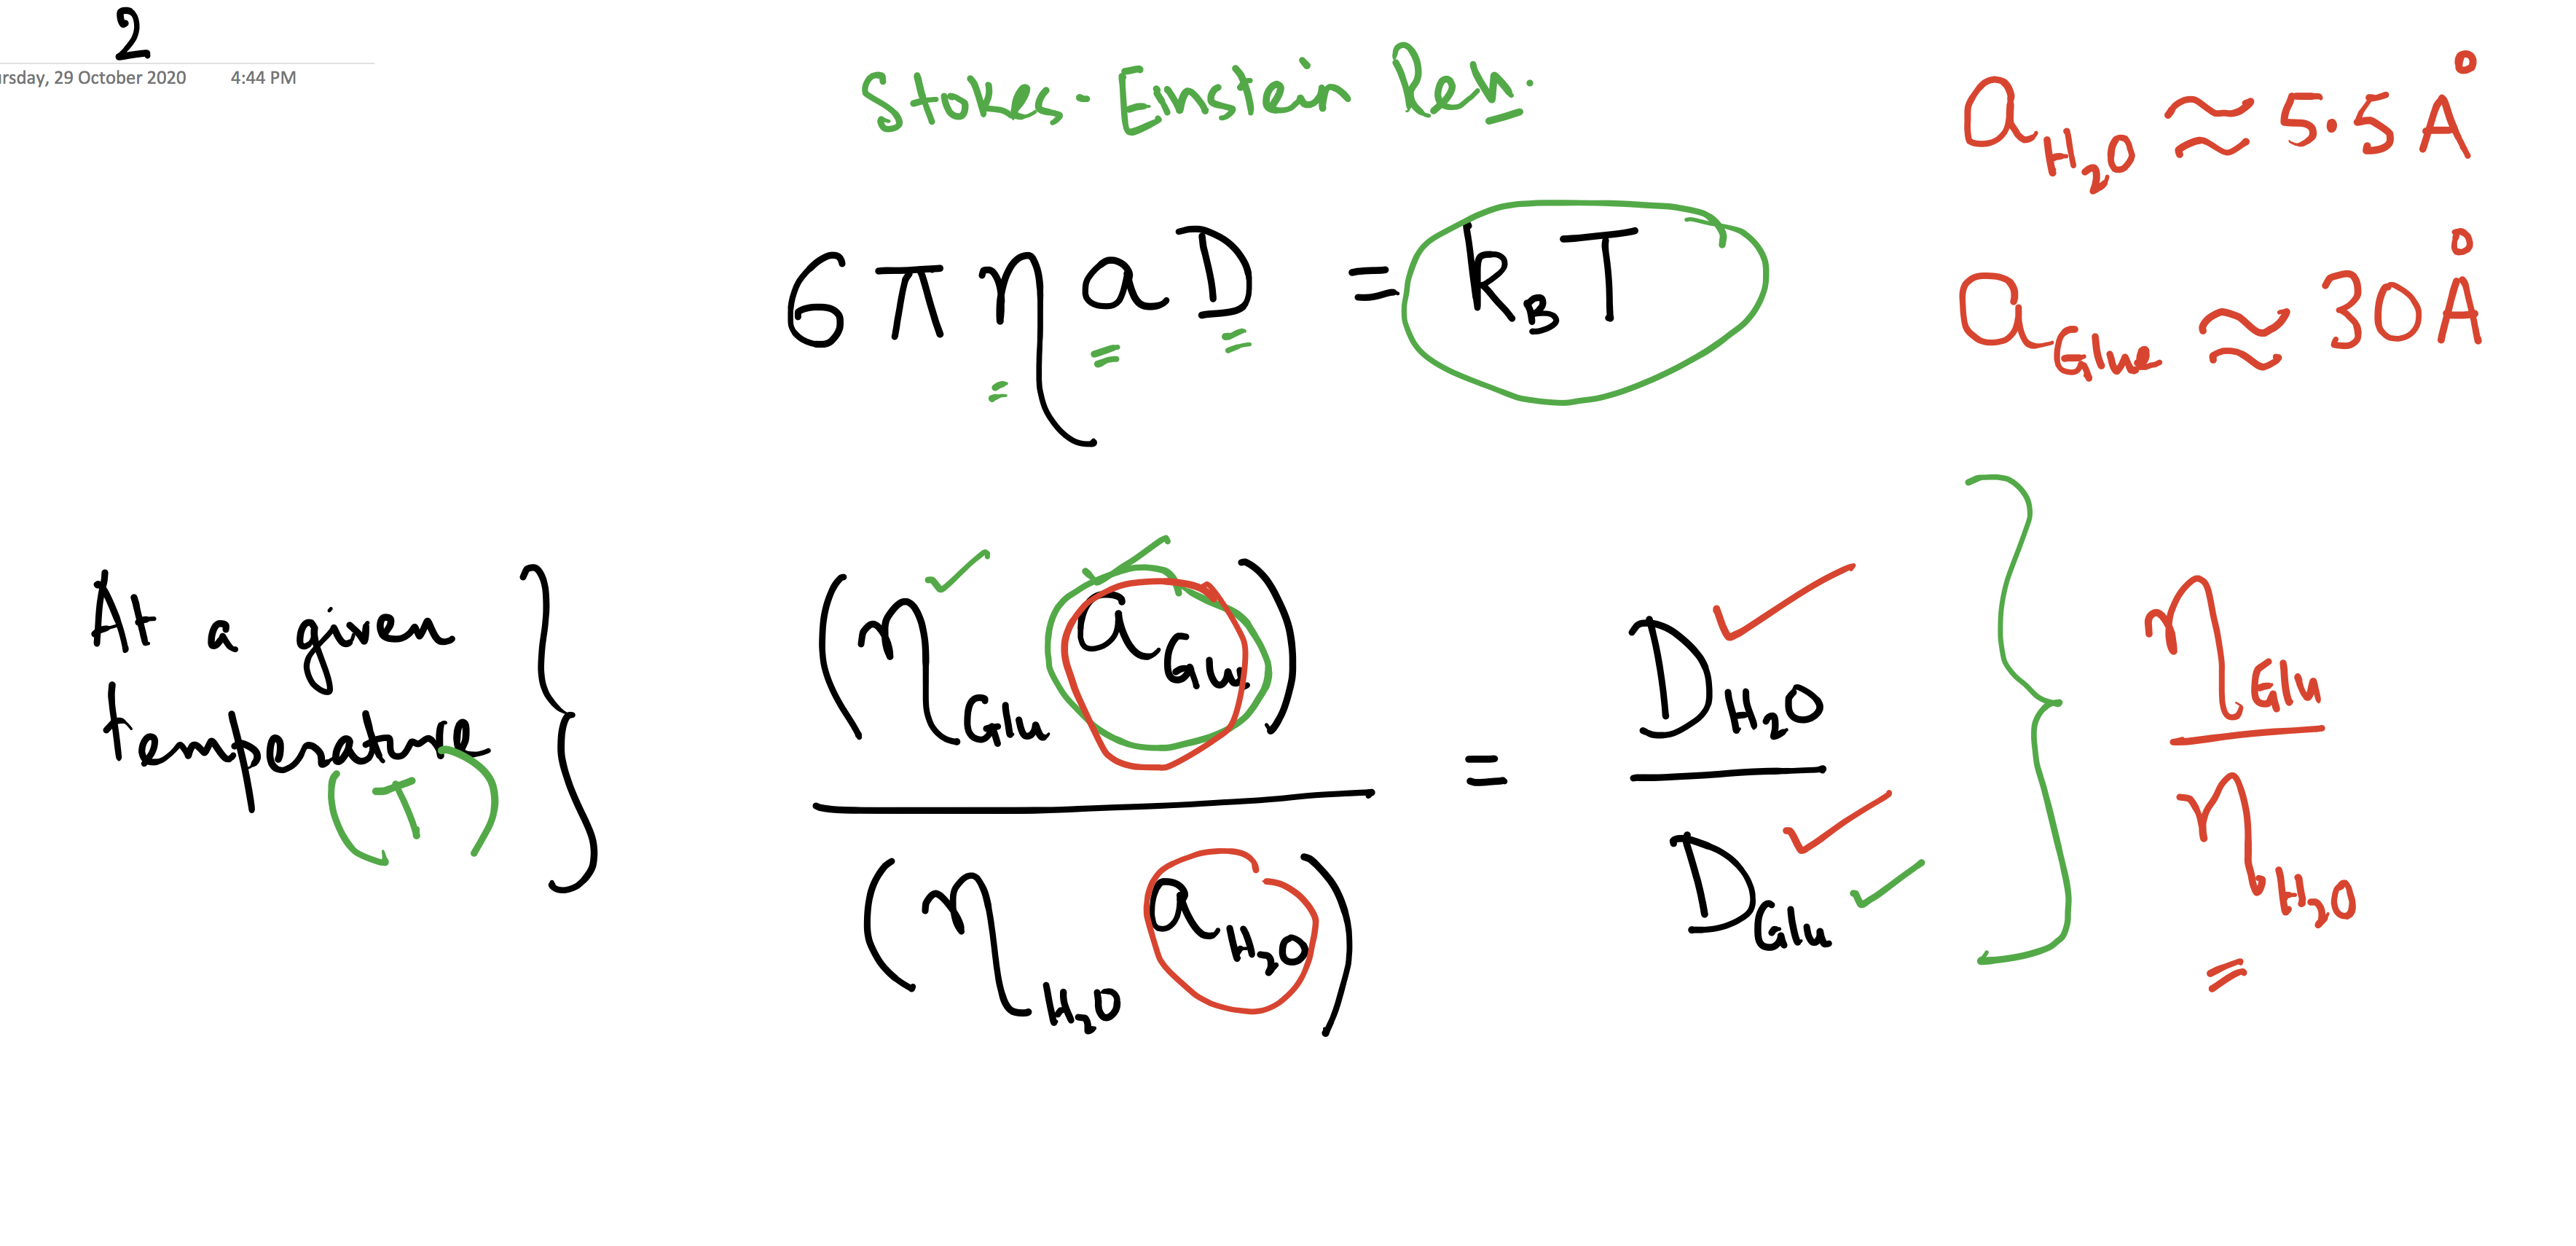 2
ursday, 29 October 2020 4:44 PM
Stokes-Einstein Reln.
a_H₂O ≈ 5.5 Å
6πηaD = k_B T
a_Glue ≈ 30 Å
At a given
temperature
(T)
(η_Glu a_Glu) / (η_H₂O a_H₂O) = D_H₂O / D_Glu
η_Glu / η_H₂O